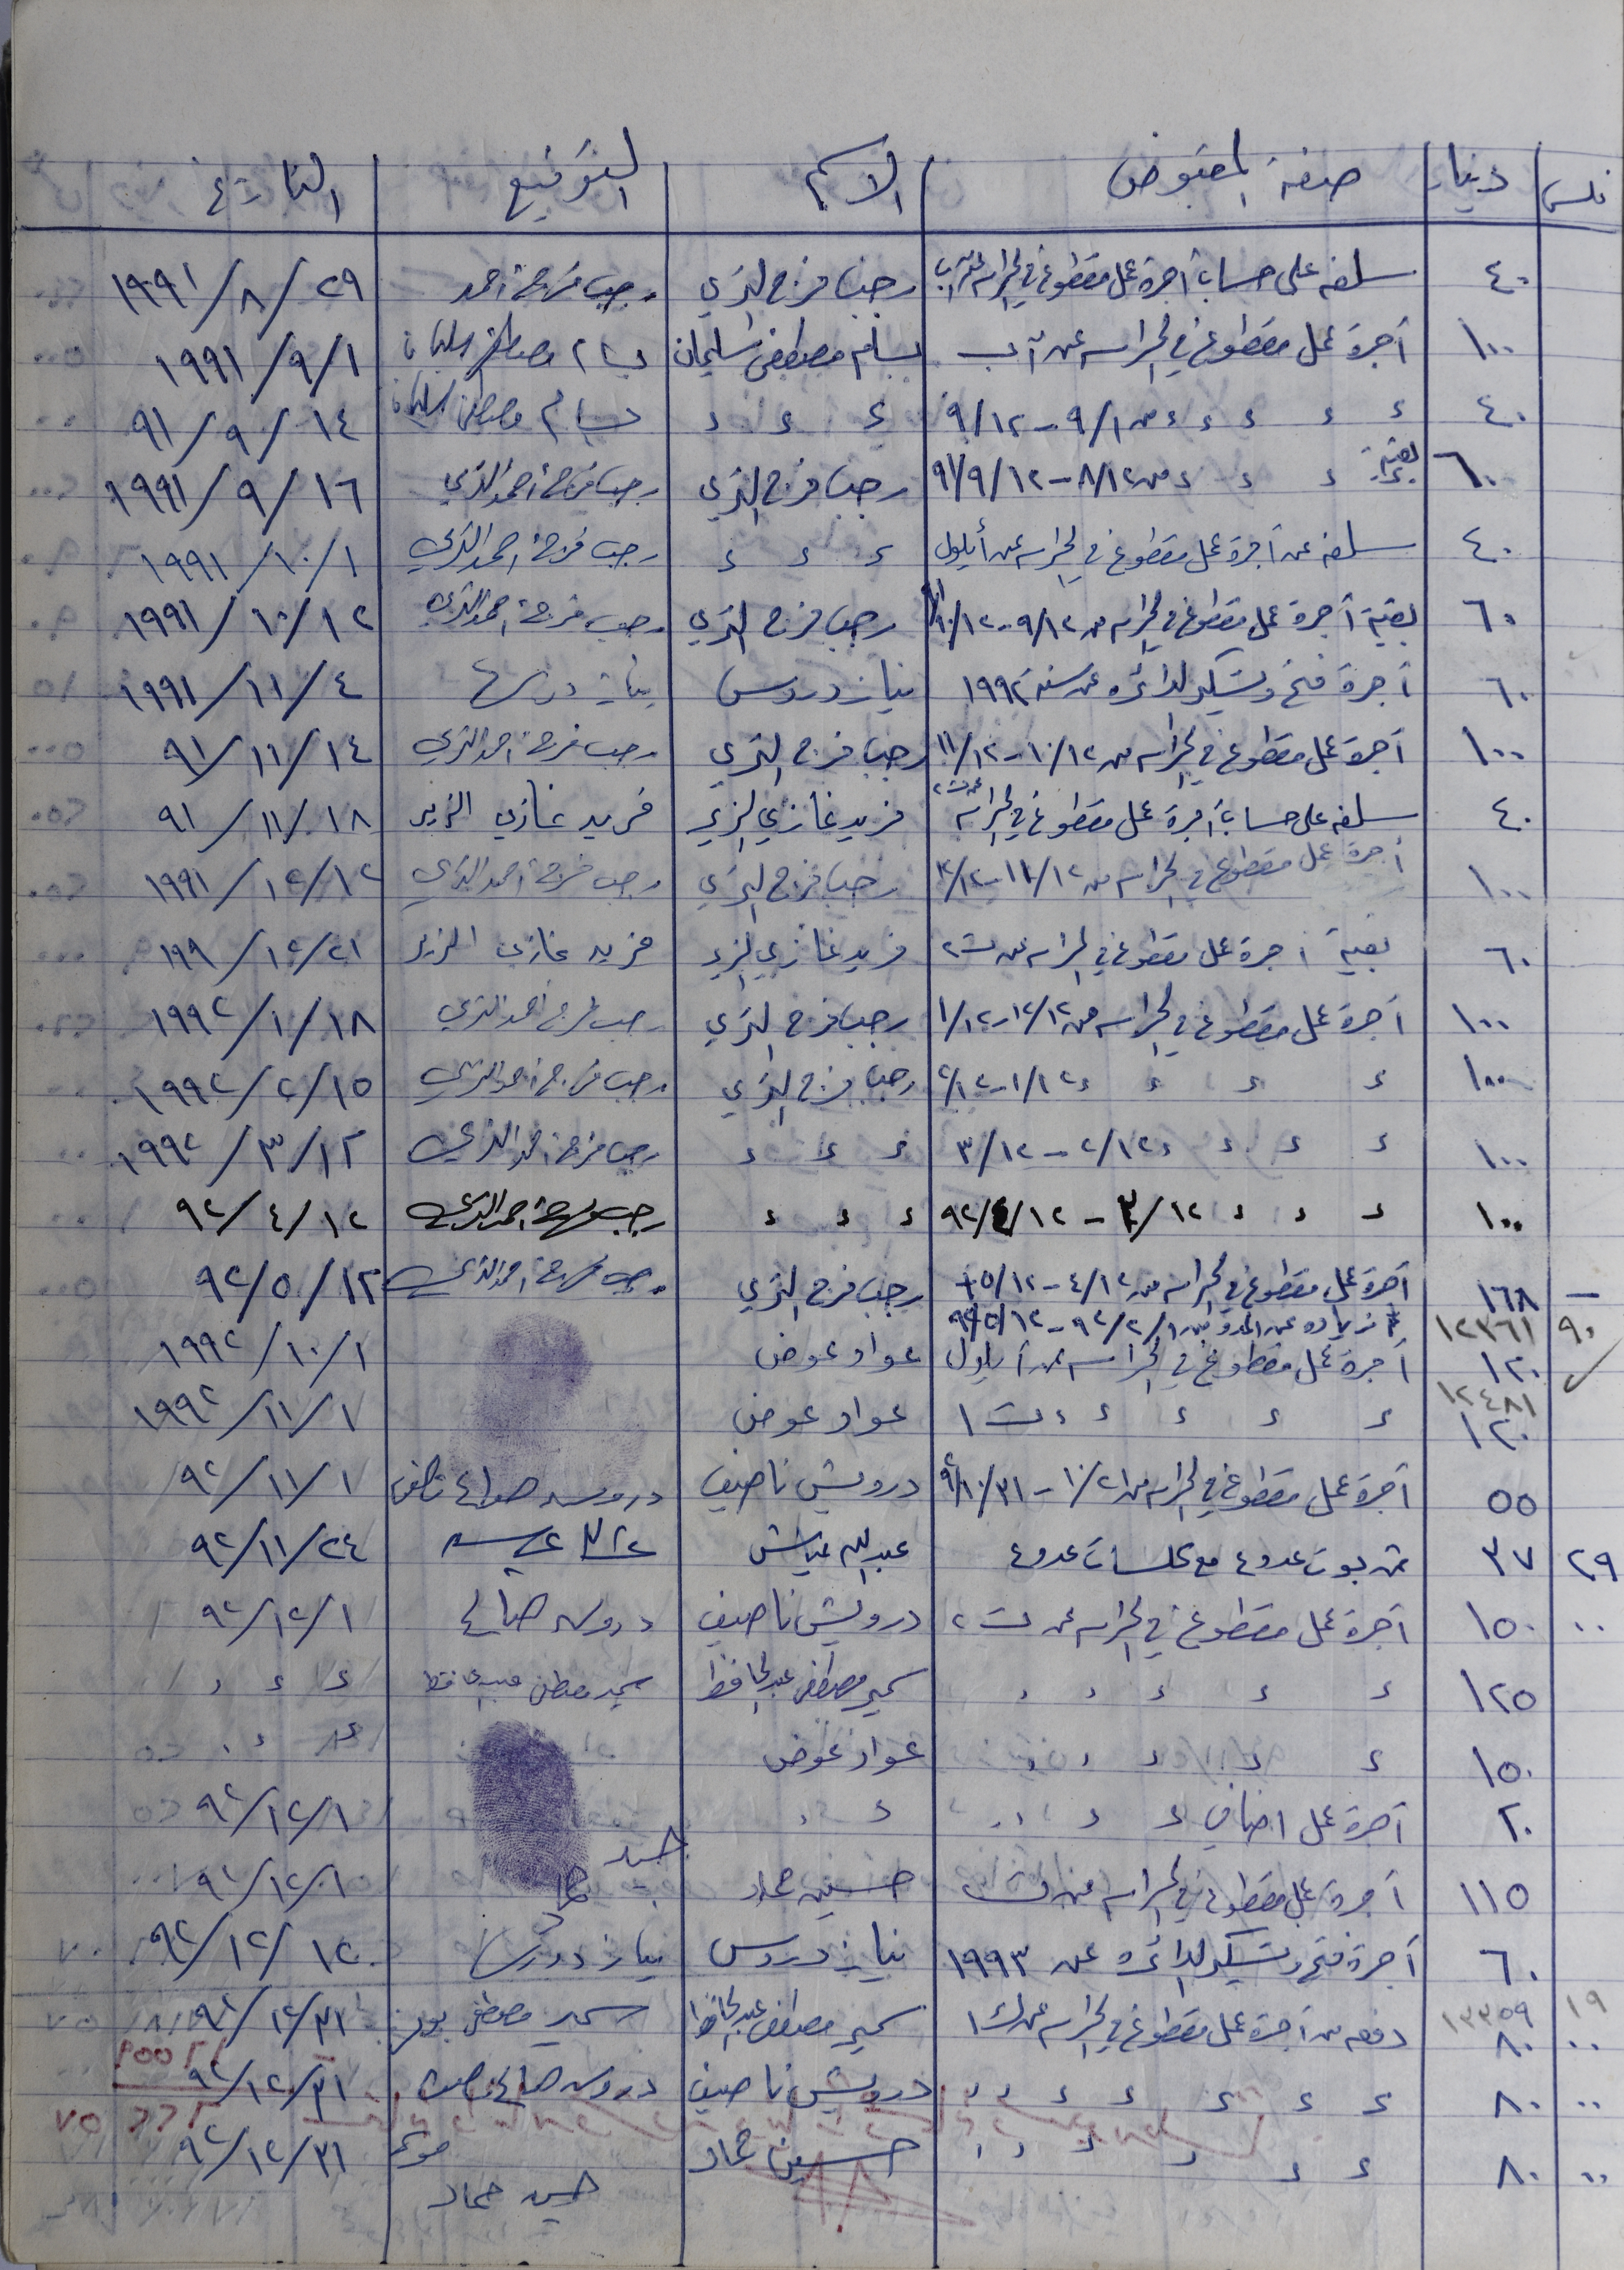 فلس دينار صفة المقبوض الاسم التوقيع التاريخ
٤٠ سلفه على حساب أجرة عمل مقطوع في الحراسه عن آب رجب فرج الذي رجب فرج احمد ٢٩/٨/١٩٩١
١٠٠ أجرة عمل مقطوع في الحراسه عن آب بسام مصطفى سليمان بسام مصطفى سليمان ١/٩/١٩٩١
٤٠ ء ء ء ء ء من ٩/١ - ٩/١٢ ء ء ء بسام مصطفى سليمان ١٤/٩/٩١
٦٠ بقية ء ء ء ء من ٨/١٢ - ٩١/٩/١٢ رجب فرج رجب فرج احمد ١٦/٩/١٩٩١
٤٠ سلفه عن أجرة عمل مقطوع في الحراسه عن أيلول ء ء ء رجب فرج احمد ١/١٠/١٩٩١
٦٠ بقية أجرة عمل مقطوع في الحراسه من ٩/١٢ - ١٠/١٢ رجب فرج رجب فرج احمد ١٢/١٠/١٩٩١
٦٠ أجرة فتح وتسكير الدائره عن سنة ١٩٩٢ نياز دروس نياز دروس ٤/١١/١٩٩١
١٠٠ أجرة عمل مقطوع في الحراسه من ١٠/١٢ - ١١/١٢ رجب فرج رجب فرج احمد ١٤/١١/٩١
٤٠ سلفه على حساب أجرة عمل مقطوع في الحراسه عن ت٢ فريد غازي الزير فريد غازي الزير ١٨/١١/٩١
١٠٠ أجرة عمل مقطوع في الحراسه من ١١/١٢ - ١٢/١٢ رجب فرج رجب فرج احمد ١٢/١٢/١٩٩١
٦٠ بقية اجرة عمل مقطوع في الحراسه عن ت٢ فريد غازي الزير فريد غازي الزير ٢١/١٢/١٩٩
١٠٠ أجرة عمل مقطوع في الحراسه من ١٢/١٢ - ١/١٢ رجب فرج رجب فرج احمد ١٨/١/١٩٩٢
١٠٠ ء ء ء ء ١/١٢ - ٢/١٢ رجب فرج رجب فرج احمد ١٥/٢/١٩٩٢
١٠٠ ء ء ء ء ٢/١٢ - ٣/١٢ ء ء ء رجب فرج احمد ١٢/٣/١٩٩٢
١٠٠ ء ء ء ء ٣/١٢ - ٩٢/٤/١٢ ء ء ء رجب فرج احمد ١٢/٤/٩٢
— ١٦٨ أجرة عمل مقطوع في الحراسه من ٤/١٢ - ٥/١٢ + رجب فرج رجب فرج احمد ١٢/٥/٩٢
٩٠ ١٢٣٦١ زياده عن المده من ٩٢/٢/١ - ٩٢/٥/١٢
١٢٠ أجرة عمل مقطوع في الحراسه عن أيلول عواد عوض ١/١٠/١٩٩٢
١٢٤٨١
١٢٠ ء ء ء ء ء ت١ عواد عوض ١/١١/١٩٩٢
٥٥ أجرة عمل مقطوع في الحراسه من ١٠/٢١ - ٩٢/١٠/٣١ درويش ناصيف درويش صالح ناصيف ١/١١/٩٢
٢٩ ٣٧ عدد ٤ مع عدد ٤ عبدالله عياش ٢٤/١١/٩٢
٠٠ ١٥٠ أجرة عمل مقطوع في الحراسه عن ت٢ درويش ناصيف درويش صالح ١/١٢/٩٢
١٢٥ ء ء ء ء ء سمير مصطفى عبدالحافظ سمير مصطفى عبدالحافظ ء ء ء
١٥٠ ء ء ء ء ء عواد عوض ء ء ء
٢٠ أجرة عمل اضافي ء ء ء ء ء ء ١/١٢/٩٢
١١٥ أجرة عمل مقطوع في الحراسه عن ت٢ حسين حماد حسين حماد ١/١٢/٩٢
٦٠ أجرة فتح وتسكير الدائره عن ١٩٩٣ نياز دروس نياز دروس ١٢/١٢/٩٢
١٩ ١٣٣٥٩
٠٠ ٨٠ دفعه من أجرة عمل مقطوع في الحراسه عن ك١ سمير مصطفى عبدالحافظ سمير مصطفى ٣١/١٢/٩٢
٠٠ ٨٠ ء ء ء ء ء ء درويش ناصيف درويش صالح ناصيف ٣١/١٢/٩٢
٠٠ ٨٠ ء ء ء ء ء ء حسين حماد ٣١/١٢/٩٢
حسين حماد